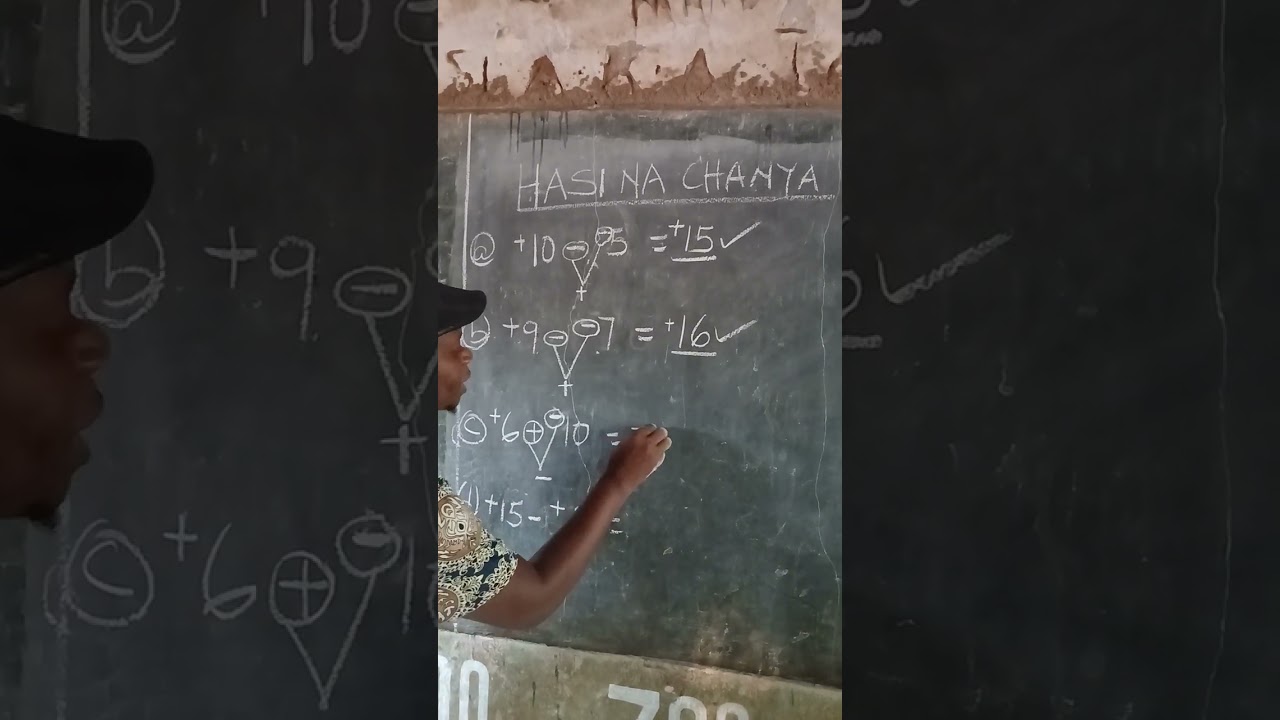 HASI NA CHANYA
(a) +10 - -5 = +15 ✓
+
(b) +9 - -7 = +16 ✓
+
(c) +6 + -10 =
-
+15 - + =